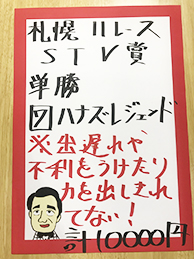 札幌11レース
STV賞
単勝
⑦ハナズレジェンド
※出遅れや
不利をうけたり
力を出しきれ
てない!
計10000円